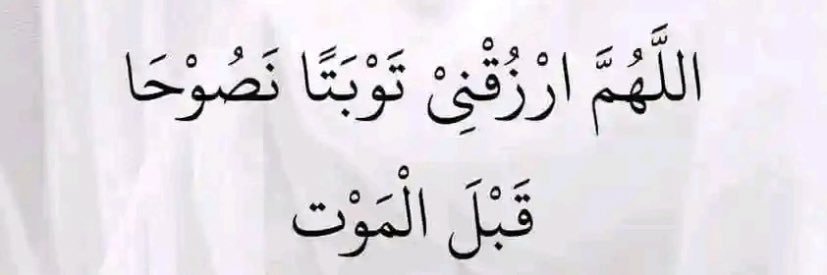 اللَّهُمَّ ارْزُقْنِيْ تَوْبَتًا نَصُوْحَا
قَبْلَ الْمَوْت